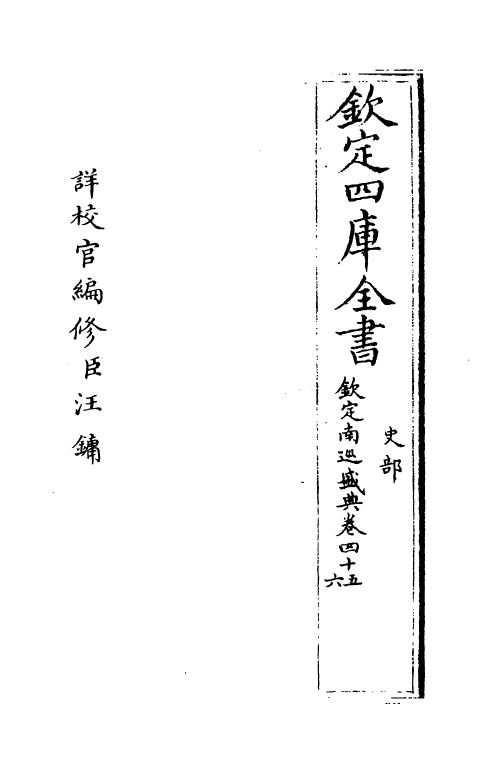 欽定四庫全書
史部
欽定南巡盛典卷四十五六
詳校官編修臣汪鏞